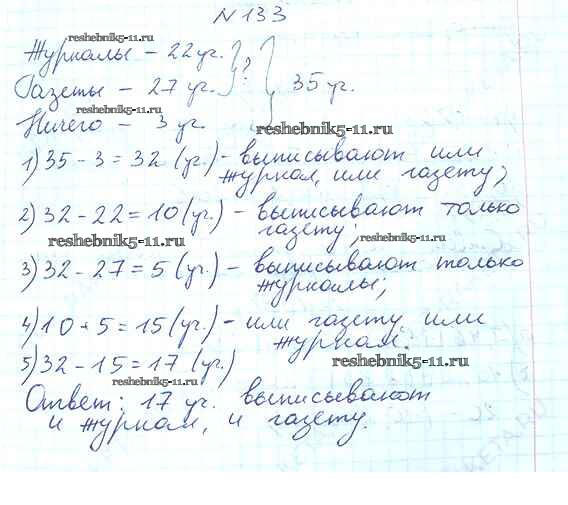 № 133
reshebnik5-11.ru
Журналы – 22 уч.
Газеты – 27 уч. ? 35 уч.
reshebnik5-11.ru
Ничего – 3 уч.
reshebnik5-11.ru
1) 35 – 3 = 32 (уч.) – выписывают или
журнал, или газету;
2) 32 – 22 = 10 (уч.) – выписывают только
газету;
reshebnik5-11.ru
reshebnik5-11.ru
3) 32 – 27 = 5 (уч.) – выписывают только
журналы;
4) 10 + 5 = 15 (уч.) – или газету или
журнал.
5) 32 – 15 = 17 (уч.)
reshebnik5-11.ru
reshebnik5-11.ru
Ответ: 17 уч. выписывают
и журнал, и газету.